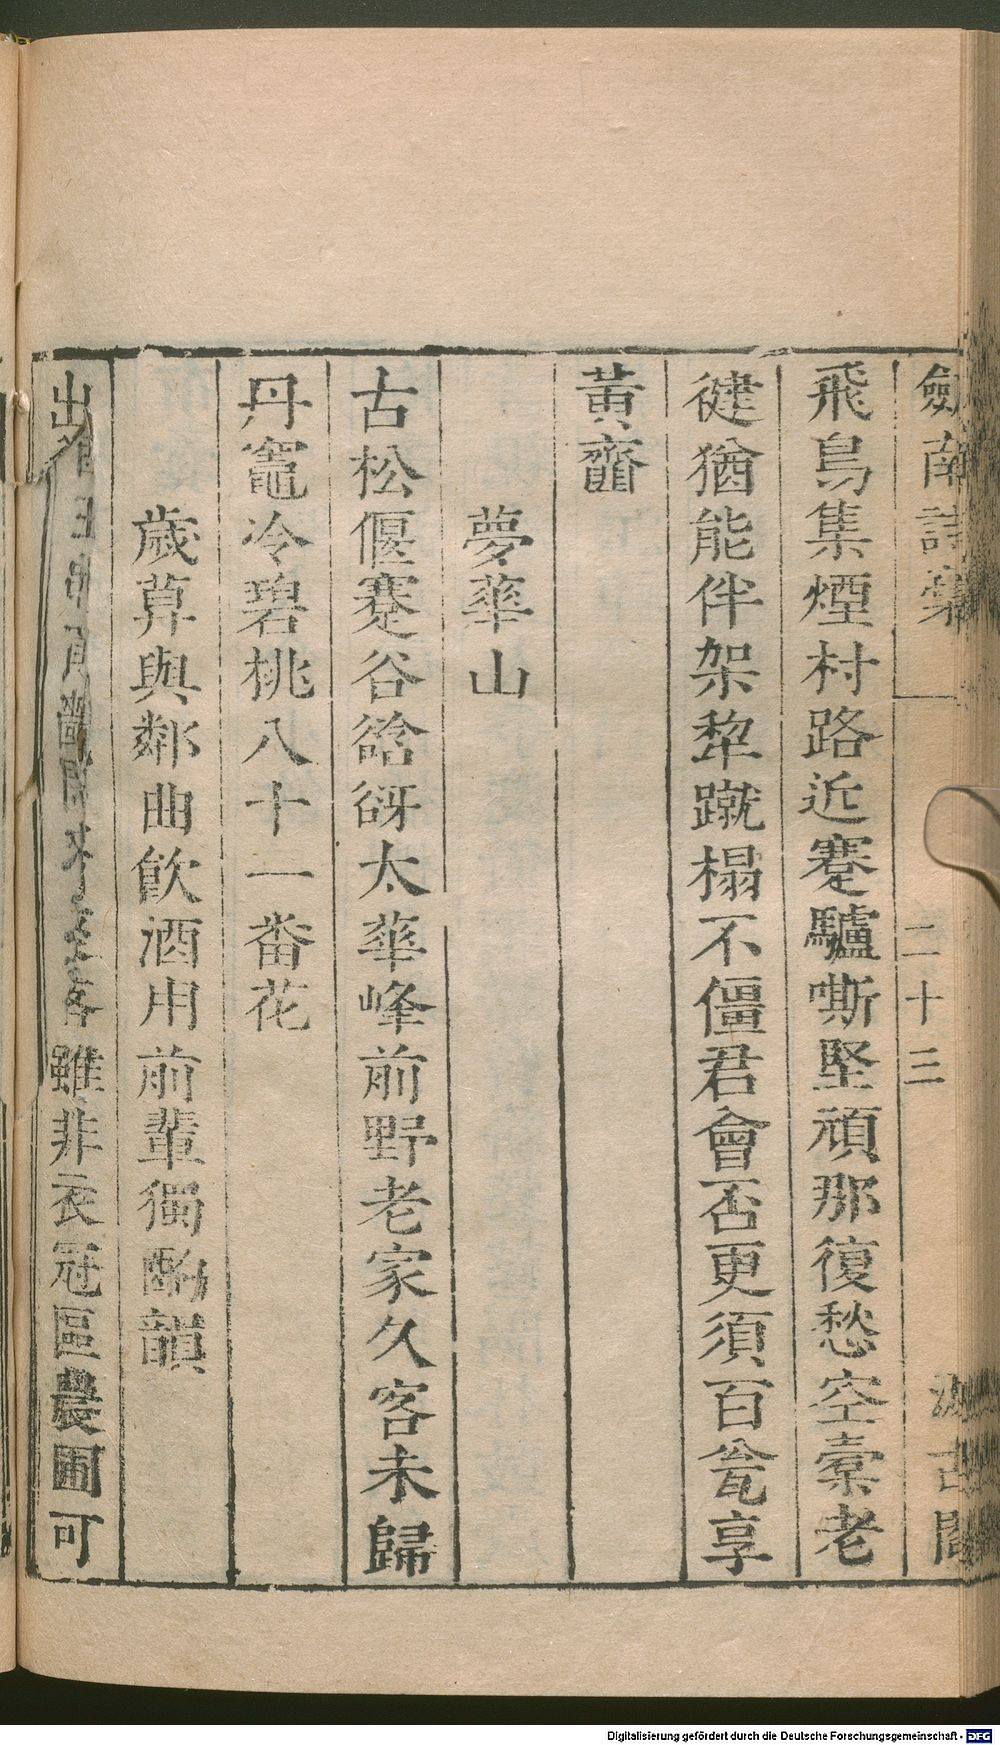 劒南詩稾
二十三
汲古閣
飛鳥集煙村路近蹇驢嘶堅頑那復愁空橐老
健猶能伴架犂蹴榻不僵君會否更須百瓮享
黃虀
夢華山
古松偃蹇谷谽谺太華峰前野老家久客未歸
丹竈冷碧桃八十一番花
歲莫與鄰曲飲酒用前輩獨酌韻
雖非衣冠區農圃可
Digitalisierung gefördert durch die Deutsche Forschungsgemeinschaft - DFG